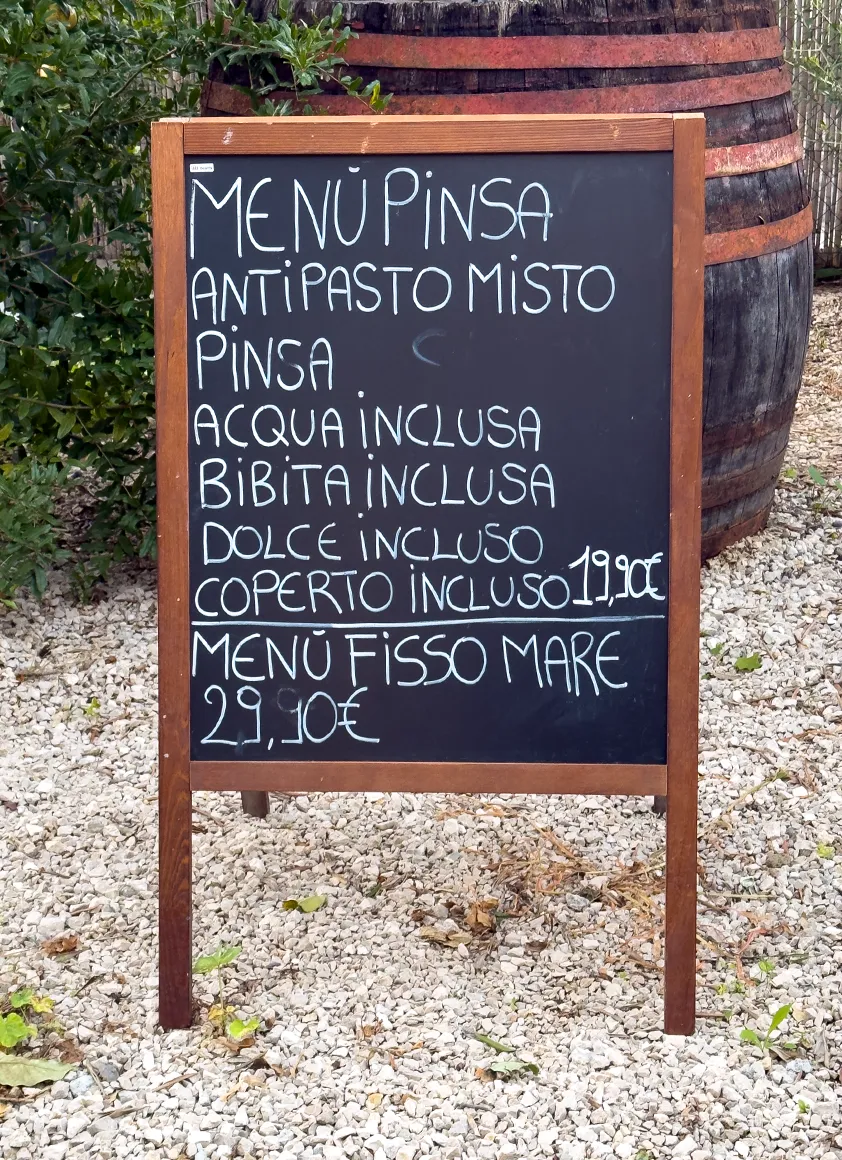 MENÙ PINSA
ANTIPASTO MISTO
PINSA
ACQUA INCLUSA
BIBITA INCLUSA
DOLCE INCLUSO
COPERTO INCLUSO 19,90€
MENÙ FISSO MARE
29,90€